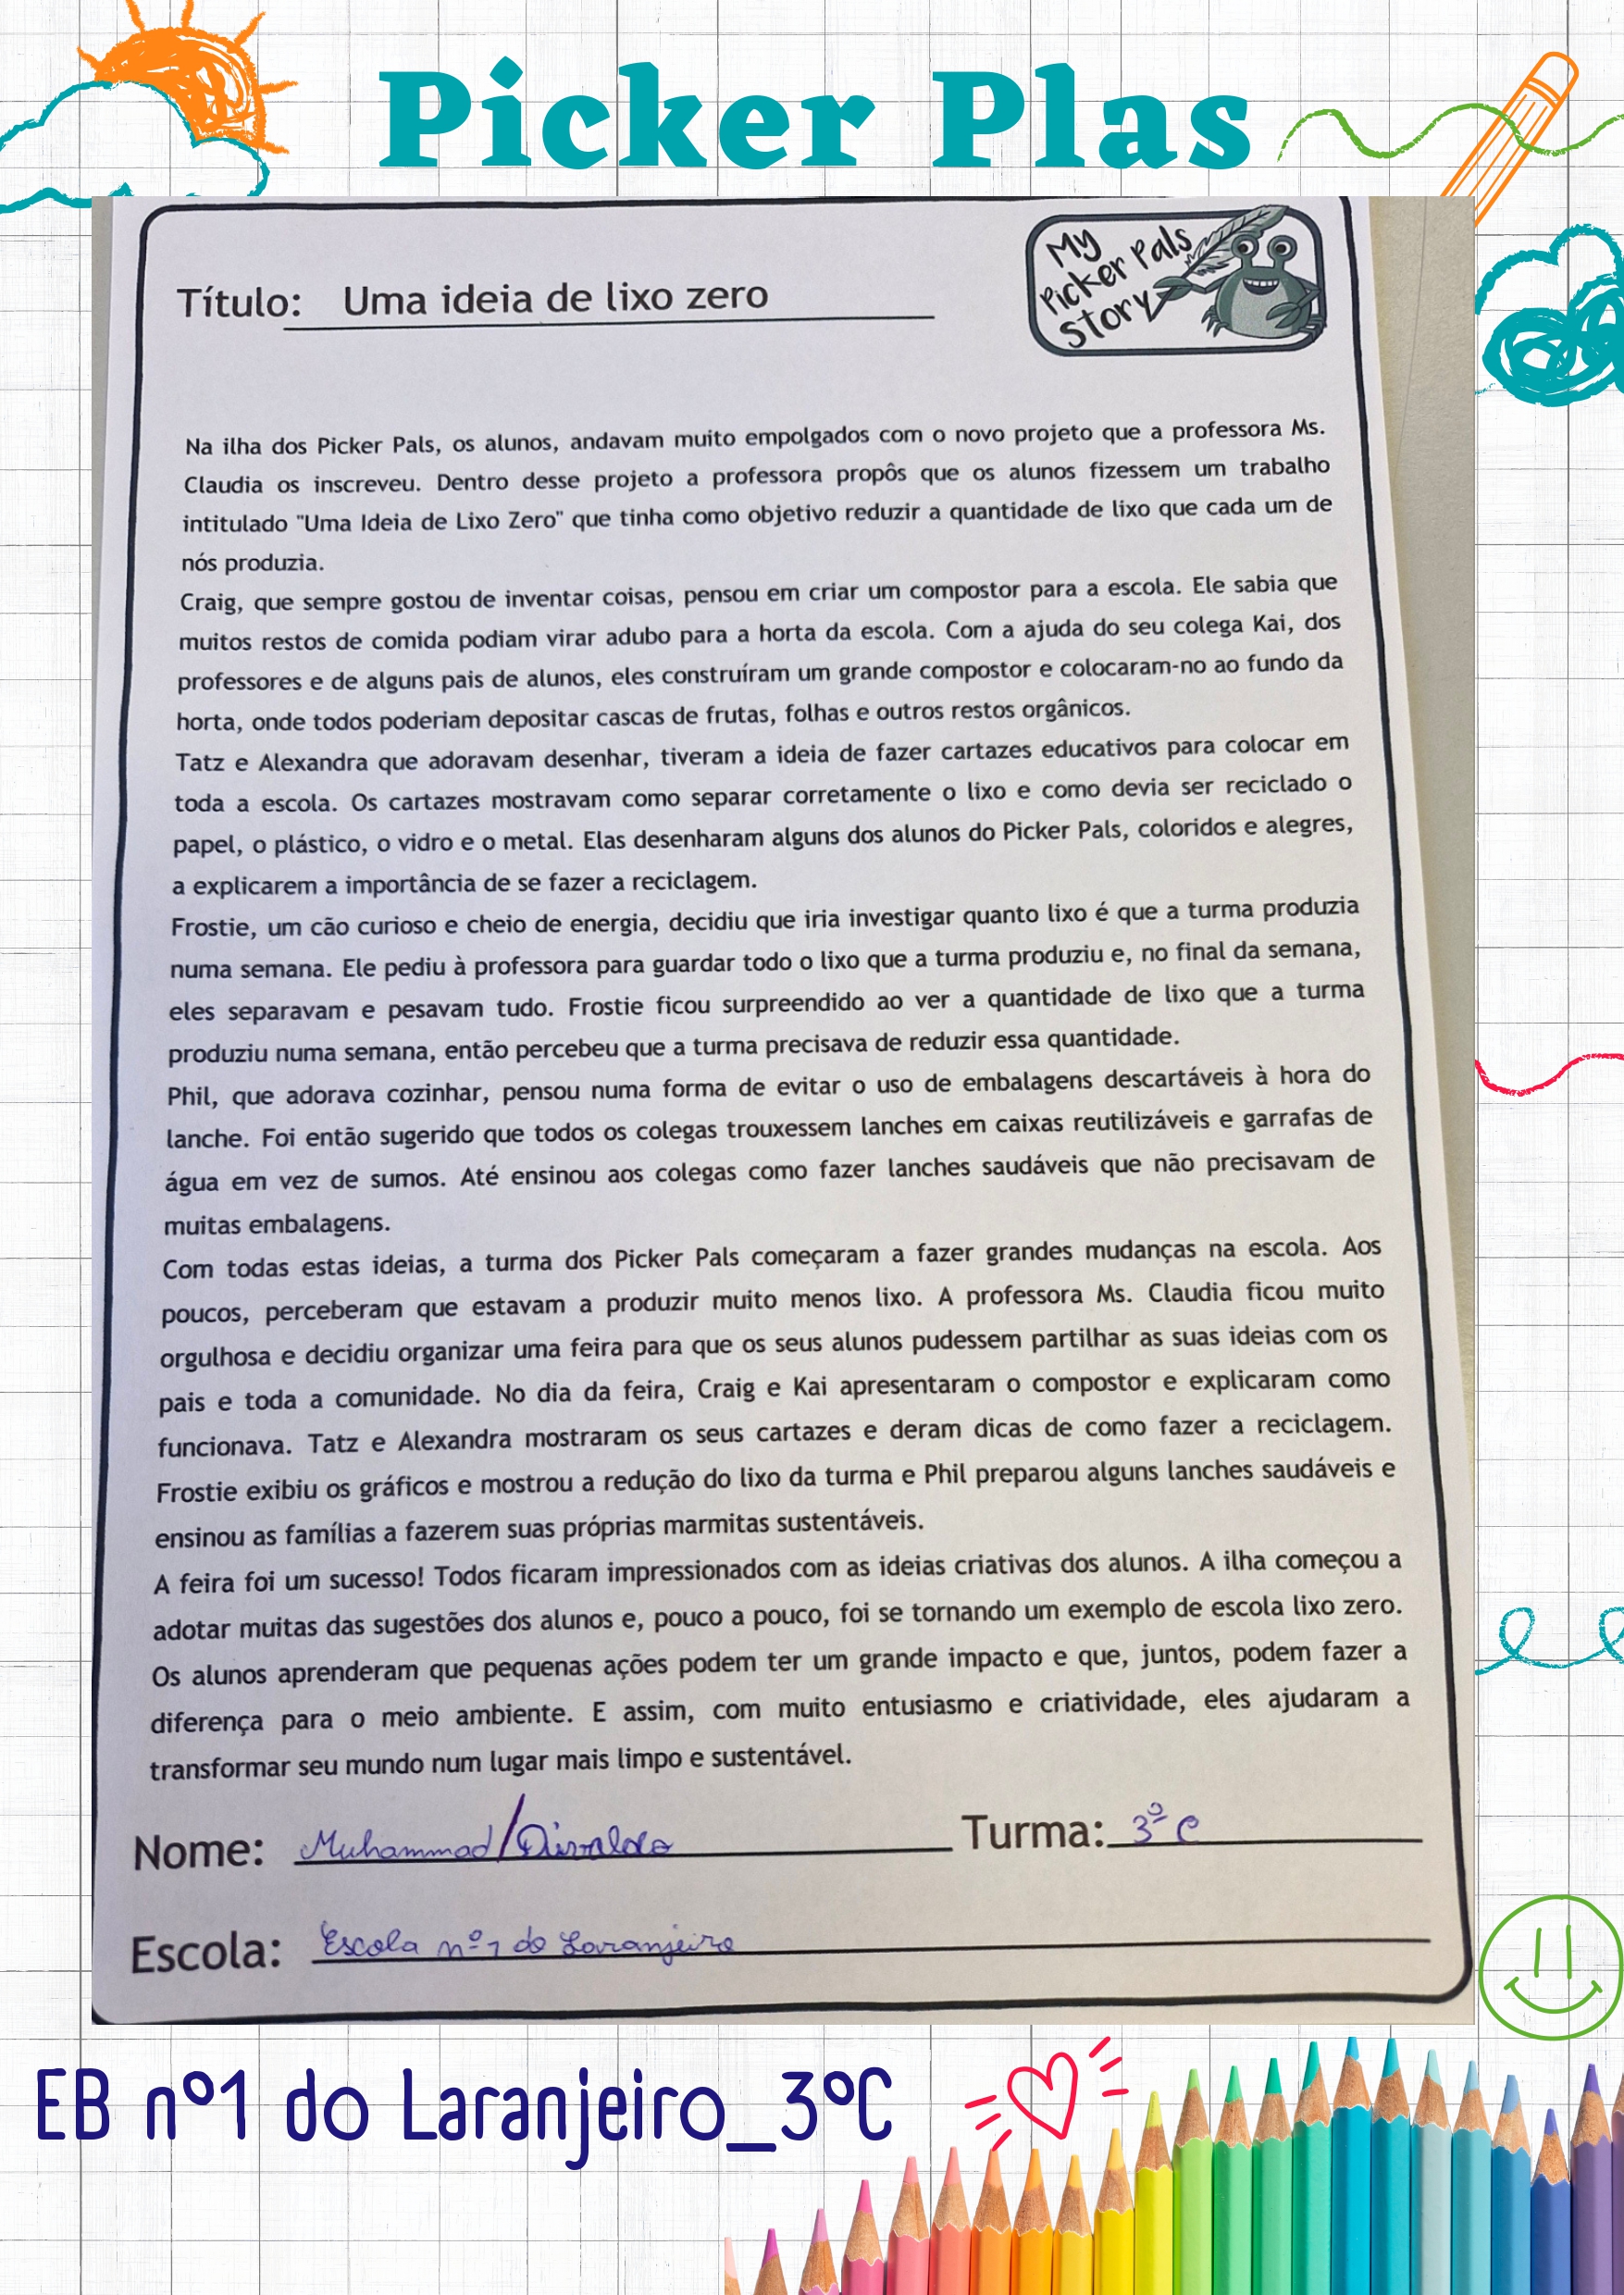 Picker Plas
My
Picker Pals
Story
Título: Uma ideia de lixo zero
Na ilha dos Picker Pals, os alunos, andavam muito empolgados com o novo projeto que a professora Ms.
Claudia os inscreveu. Dentro desse projeto a professora propôs que os alunos fizessem um trabalho
intitulado "Uma Ideia de Lixo Zero" que tinha como objetivo reduzir a quantidade de lixo que cada um de
nós produzia.
Craig, que sempre gostou de inventar coisas, pensou em criar um compostor para a escola. Ele sabia que
muitos restos de comida podiam virar adubo para a horta da escola. Com a ajuda do seu colega Kai, dos
professores e de alguns pais de alunos, eles construíram um grande compostor e colocaram-no ao fundo da
horta, onde todos poderiam depositar cascas de frutas, folhas e outros restos orgânicos.
Tatz e Alexandra que adoravam desenhar, tiveram a ideia de fazer cartazes educativos para colocar em
toda a escola. Os cartazes mostravam como separar corretamente o lixo e como devia ser reciclado o
papel, o plástico, o vidro e o metal. Elas desenharam alguns dos alunos do Picker Pals, coloridos e alegres,
a explicarem a importância de se fazer a reciclagem.
Frostie, um cão curioso e cheio de energia, decidiu que iria investigar quanto lixo é que a turma produzia
numa semana. Ele pediu à professora para guardar todo o lixo que a turma produziu e, no final da semana,
eles separavam e pesavam tudo. Frostie ficou surpreendido ao ver a quantidade de lixo que a turma
produziu numa semana, então percebeu que a turma precisava de reduzir essa quantidade.
Phil, que adorava cozinhar, pensou numa forma de evitar o uso de embalagens descartáveis à hora do
lanche. Foi então sugerido que todos os colegas trouxessem lanches em caixas reutilizáveis e garrafas de
água em vez de sumos. Até ensinou aos colegas como fazer lanches saudáveis que não precisavam de
muitas embalagens.
Com todas estas ideias, a turma dos Picker Pals começaram a fazer grandes mudanças na escola. Aos
poucos, perceberam que estavam a produzir muito menos lixo. A professora Ms. Claudia ficou muito
orgulhosa e decidiu organizar uma feira para que os seus alunos pudessem partilhar as suas ideias com os
pais e toda a comunidade. No dia da feira, Craig e Kai apresentaram o compostor e explicaram como
funcionava. Tatz e Alexandra mostraram os seus cartazes e deram dicas de como fazer a reciclagem.
Frostie exibiu os gráficos e mostrou a redução do lixo da turma e Phil preparou alguns lanches saudáveis e
ensinou as famílias a fazerem suas próprias marmitas sustentáveis.
A feira foi um sucesso! Todos ficaram impressionados com as ideias criativas dos alunos. A ilha começou a
adotar muitas das sugestões dos alunos e, pouco a pouco, foi se tornando um exemplo de escola lixo zero.
Os alunos aprenderam que pequenas ações podem ter um grande impacto e que, juntos, podem fazer a
diferença para o meio ambiente. E assim, com muito entusiasmo e criatividade, eles ajudaram a
transformar seu mundo num lugar mais limpo e sustentável.
Nome: Muhammad/ Turma: 3º C
Escola: Escola nº1 do Laranjeiro
EB nº1 do Laranjeiro_3ºC